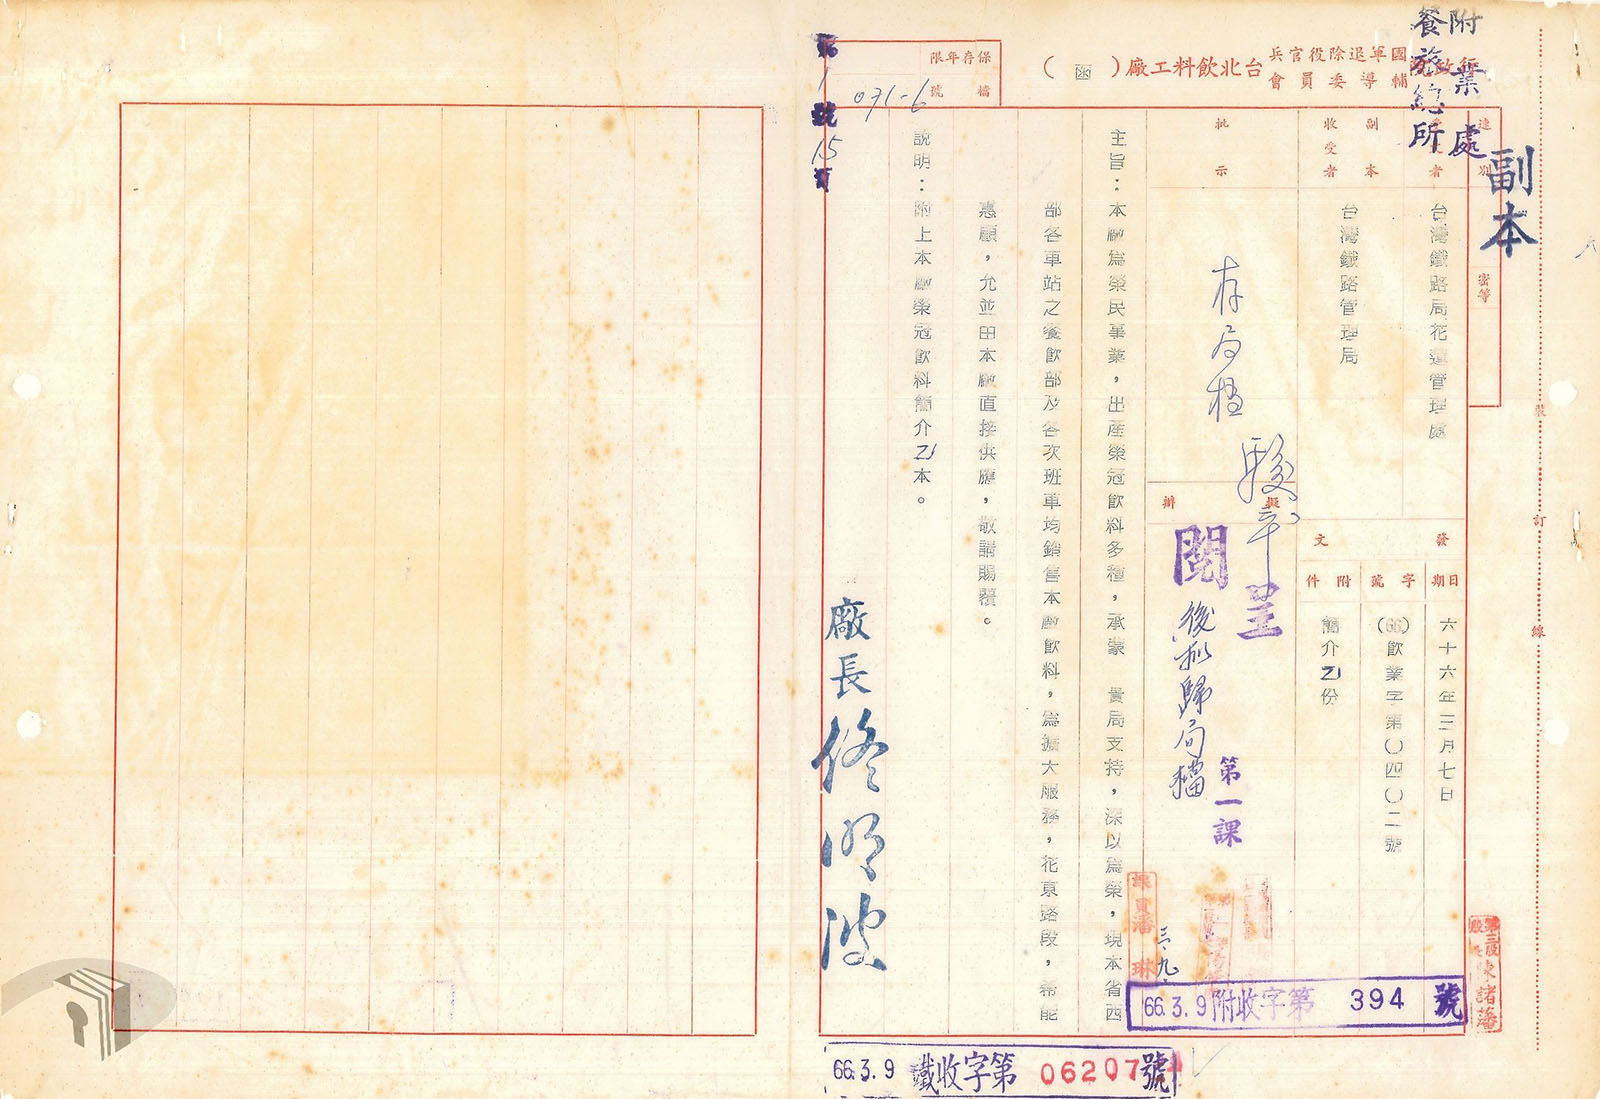 副本
附業處
餐旅總所
行政院國軍退除役官兵輔導委員會台北飲料工廠（函）
保存年限
檔號
071-6
第1號
15頁
速別
密等
受文者
台灣鐵路局花蓮管理處
副本收受者
台灣鐵路管理局
批示
存局檔
擬辦
閱後擬歸局檔
呈
第一課
三.九
發文
日期
六十六年三月七日
字號
(66)飲業字第〇四〇二號
附件
簡介乙份
主旨：本廠為榮民事業，出產榮冠飲料多種，承蒙　貴局支持，深以為榮，現本省西
部各車站之餐飲部及各次班車均銷售本廠飲料，為擴大服務，花東路段，希能
惠顧，允並由本廠直接供應，敬請賜覆。
說明：附上本廠榮冠飲料簡介乙本。
廠長佟明波
課員潘琳
66.3.9附收字第394號
66.3.9鐵收字第06207號
裝
訂
線